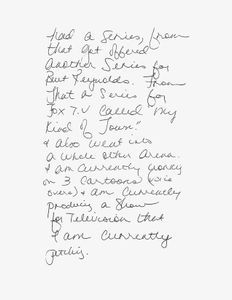 had a series, from
that got offered
another series for
Burt Reynolds. From
that a series for
Fox T.V called "My
Kind of Town."
& also went into
a whole other arena.
& am currently working
on 3 cartoons (voice
overs) & am currently
producing a show
for Television that
I am currently
pitching.